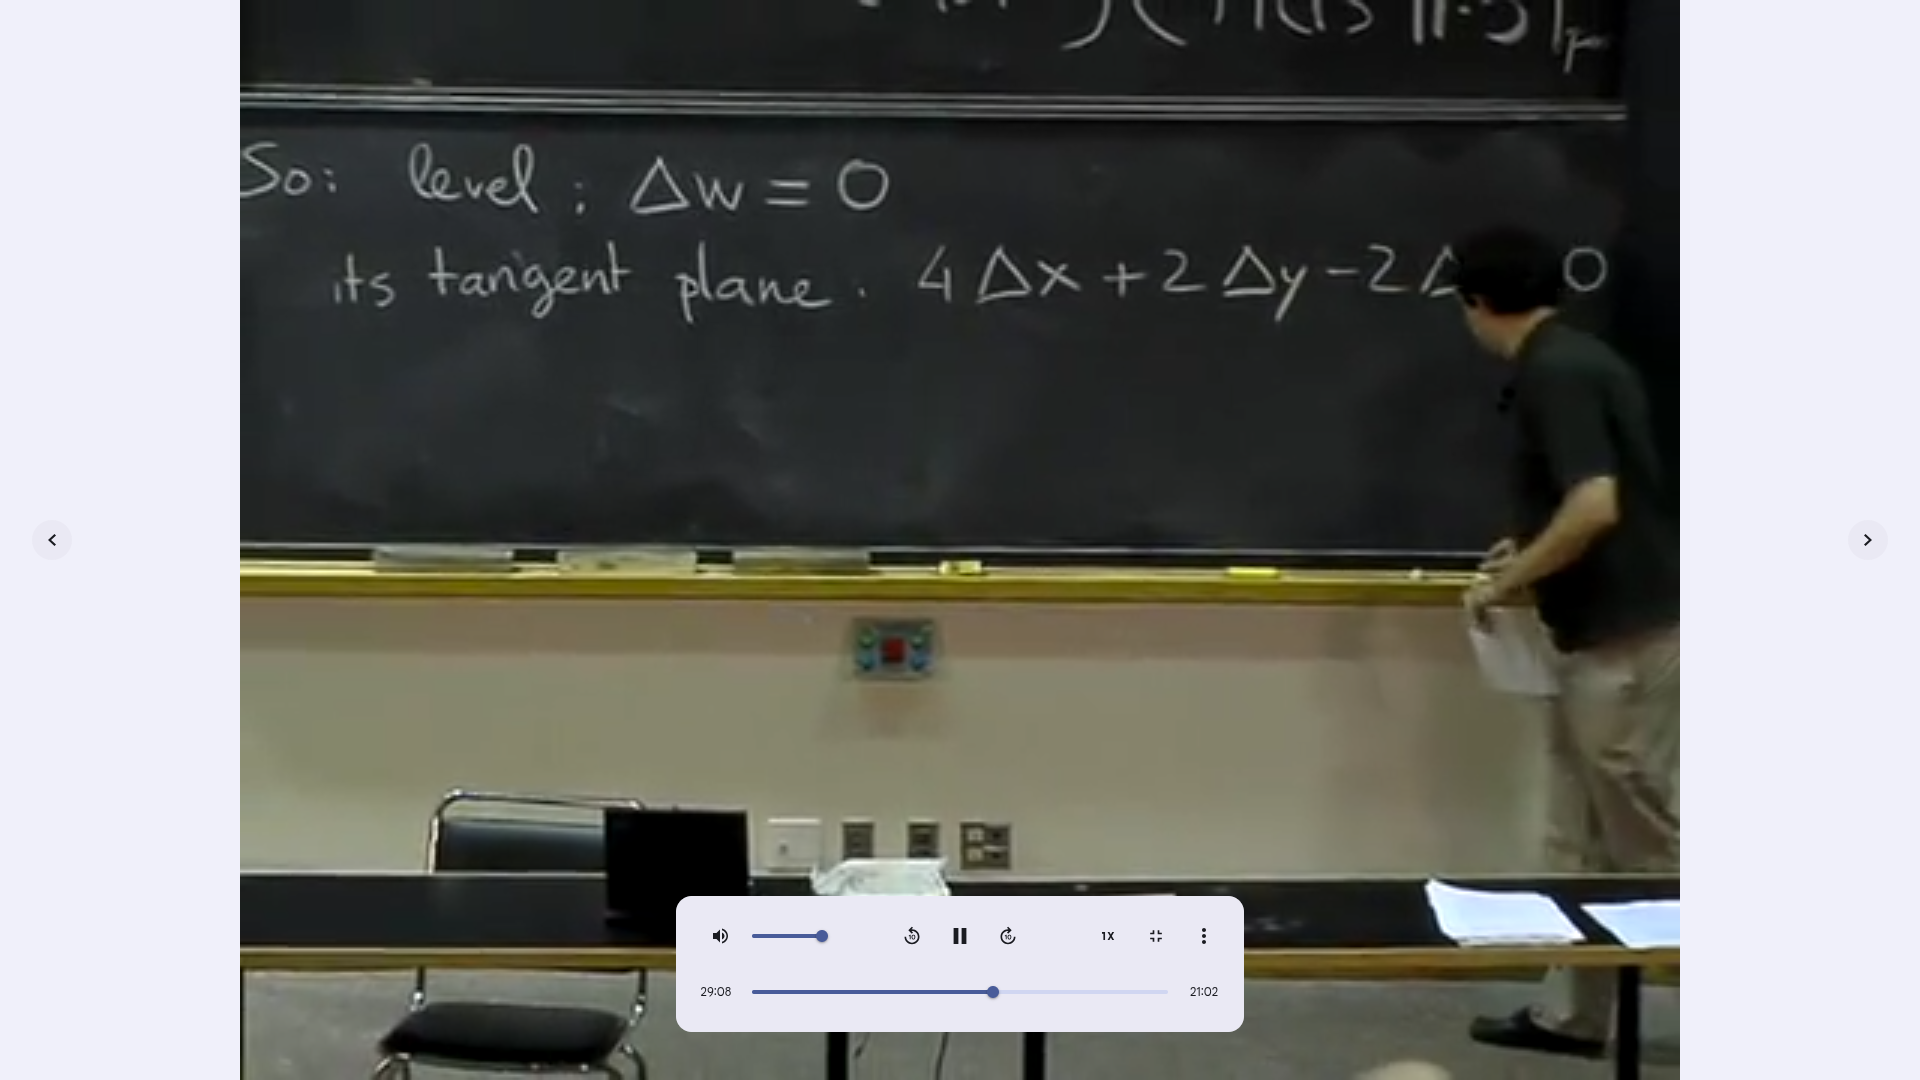 So: level: Δw = 0
its tangent plane. 4Δx + 2Δy - 2Δ 0
1X
29:08
21:02